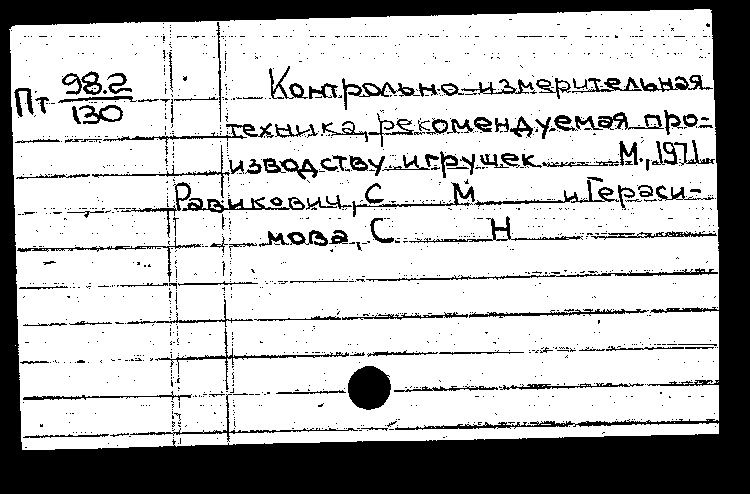 Пт 98.2/130
Контрольно-измерительная
техника, рекомендуемая про-
изводству игрушек М., 1971
Равикович, С М и Гераси-
мова, С Н